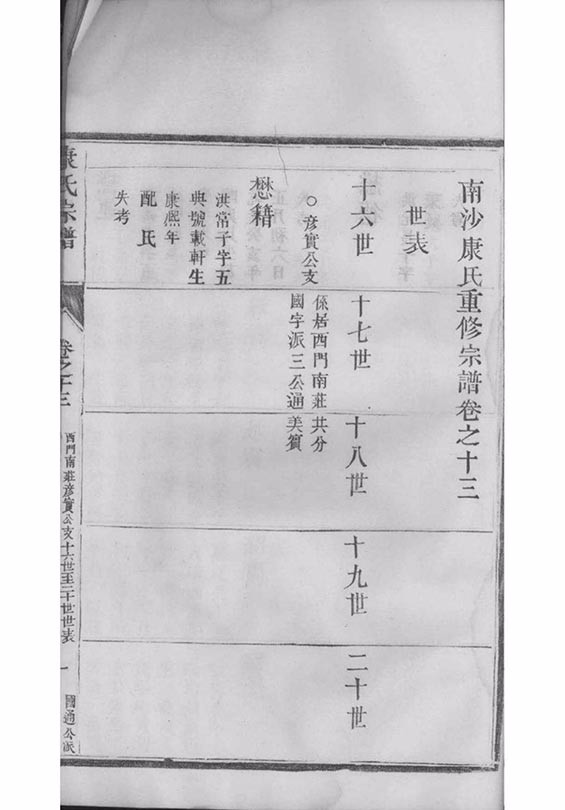 南沙康氏重修宗譜卷之十三
世表
十六世
十七世
十八世
十九世
二十世
○彦實公支
係居西門南莊共分
國字派三公通美賓
懋籍
洪常子字五
典號載軒生
康熙年
配氏
失考
康氏宗譜
卷之十三
西門南莊彦實公支十六世至二十世世表
一
國通公派